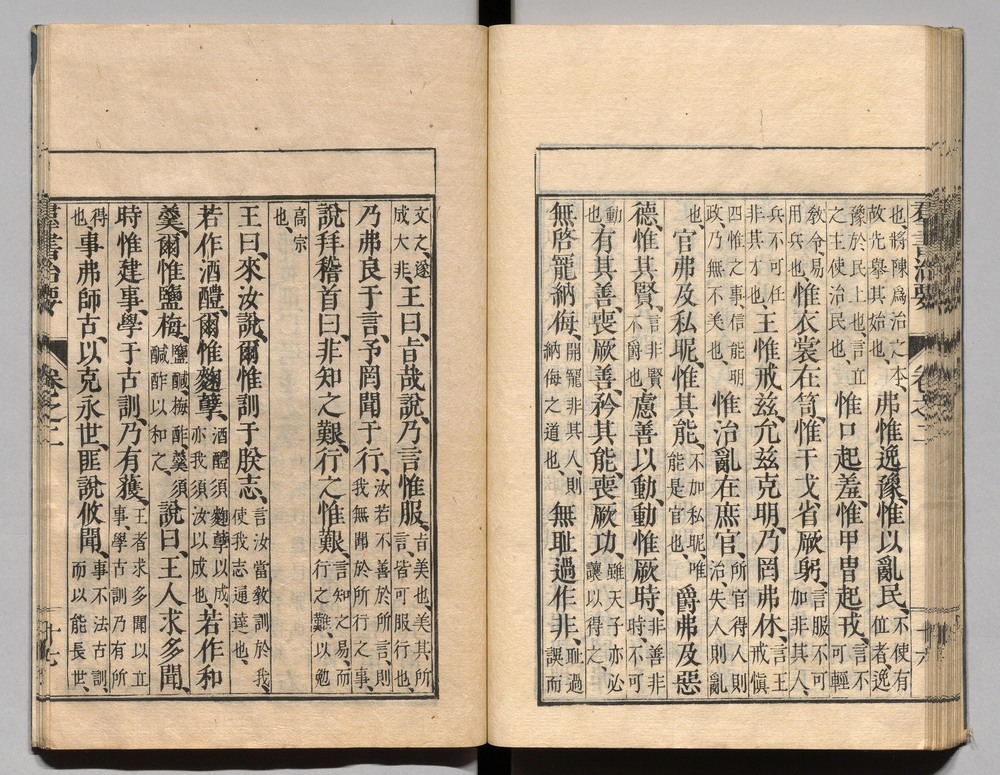 也、將陳爲治之本、弗惟逸豫、惟以亂民、不使有
故先擧其始也、位者、逸
豫於民上也、言立惟口起羞、惟甲冑起戎、言不
之主使治民也、可輕
敎令、易惟衣裳在笥、惟干戈省厥躬、言服不可
用兵也、加非其人、
兵不可任王惟戒兹、允兹克明、乃罔弗休、言王
非其才也、戒愼
四惟之事、信能明惟治亂在庶官、所官得人則
政、乃無不美也、治、失人則亂
也、官弗及私昵、惟其能、不加私昵、唯爵弗及惡
能是官也、
德、惟其賢、言非賢慮善以動、動惟厥時、非善非
不爵也、時、不可
動也、有其善、喪厥善、矜其能、喪厥功、雖天子亦必
讓以得之、
無啓寵納侮、開寵非其人、則無耻過作非、耻過
納侮之道也、誤而
文之、遂王曰、旨哉說、乃言惟服、旨、美也、美其所
成大非、言、皆可服行也、
乃弗良于言、予罔聞于行、汝若不善於所言、則
我無聞於所行之事、
說拜稽首曰、非知之艱、行之惟艱、言知之易、而
行之難、以勉
高宗
也、
王曰、來汝說、爾惟訓于朕志、言汝當敎訓於我、
使我志通達也、
若作酒醴、爾惟麴櫱、酒醴須麴櫱以成、若作和
亦我須汝以成也、
羹、爾惟鹽梅、鹽鹹、梅酢、羹須說曰、王人求多聞、
鹹酢以和之、
時惟建事、學于古訓、乃有獲、王者求多聞以立
事、學古訓乃有所
得也、事弗師古、以克永世、匪說攸聞、事不法古訓、
而以能長世、
羣書治要 卷之二 十六
羣書治要 卷之二 十七